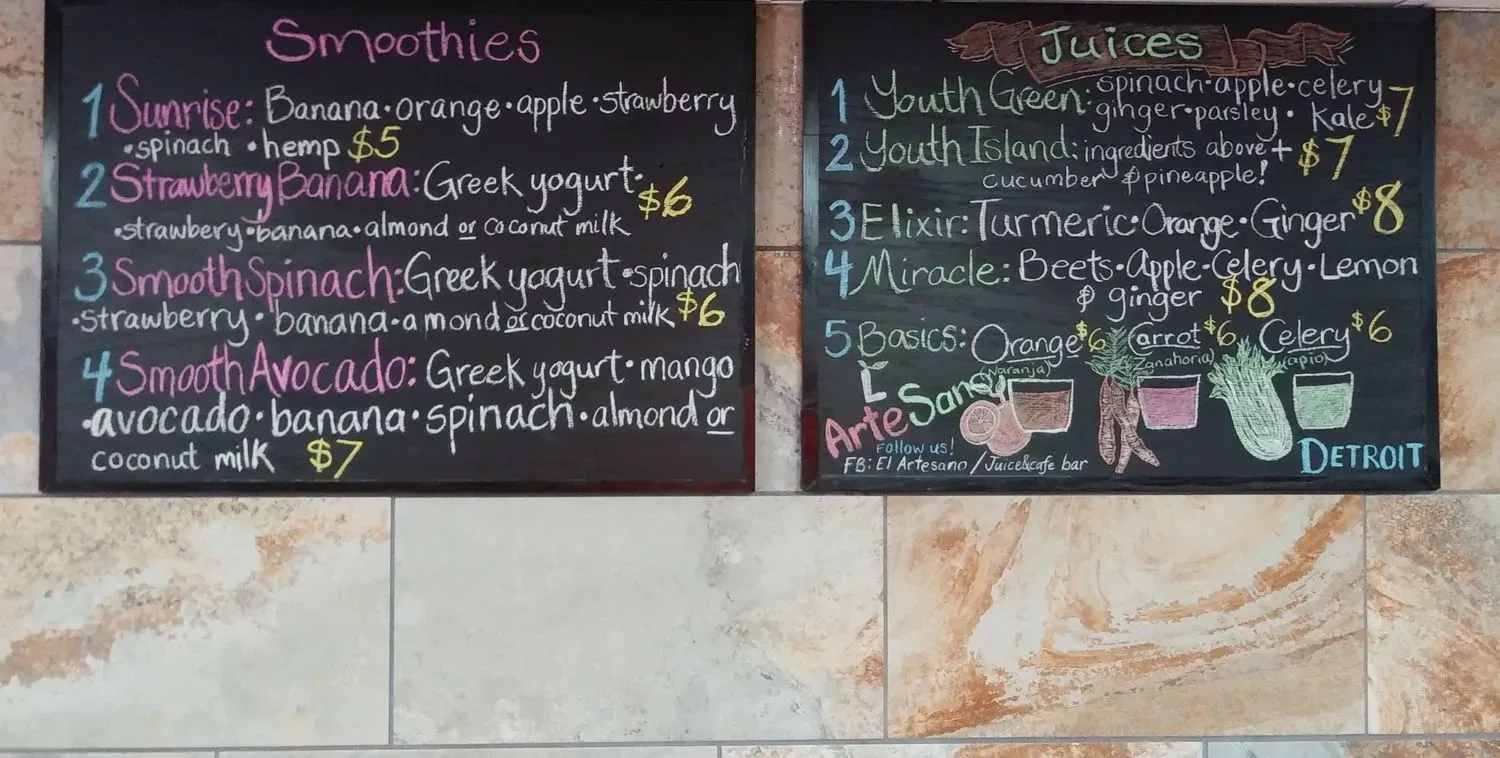 Smoothies
1 Sunrise: Banana • orange • apple • strawberry
• spinach • hemp $5
2 Strawberry Banana: Greek yogurt • $6
• strawbery • banana • almond or coconut milk
3 Smooth Spinach: Greek yogurt • spinach
• strawberry • banana • amond or coconut milk $6
4 Smooth Avocado: Greek yogurt • mango
• avocado • banana • spinach • almond or
coconut milk $7
Juices
1 Youth Green: spinach • apple • celery
ginger • parsley • Kale $7
2 Youth Island: ingredients above + $7
cucumber & pineapple!
3 Elixir: Turmeric • Orange • Ginger $8
4 Miracle: Beets • Apple - Celery • Lemon
& ginger $8
5 Basics: Orange $6 Carrot $6 Celery $6
(Naranja) (Zanahoria) (apio)
EL
ArteSano
Follow us!
FB: El Artesano / Juice&cafe bar
DETROIT